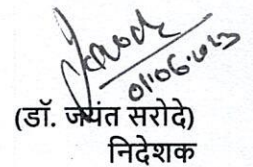 01.06.2023
(डॉ. जयंत सरोदे)
निदेशक